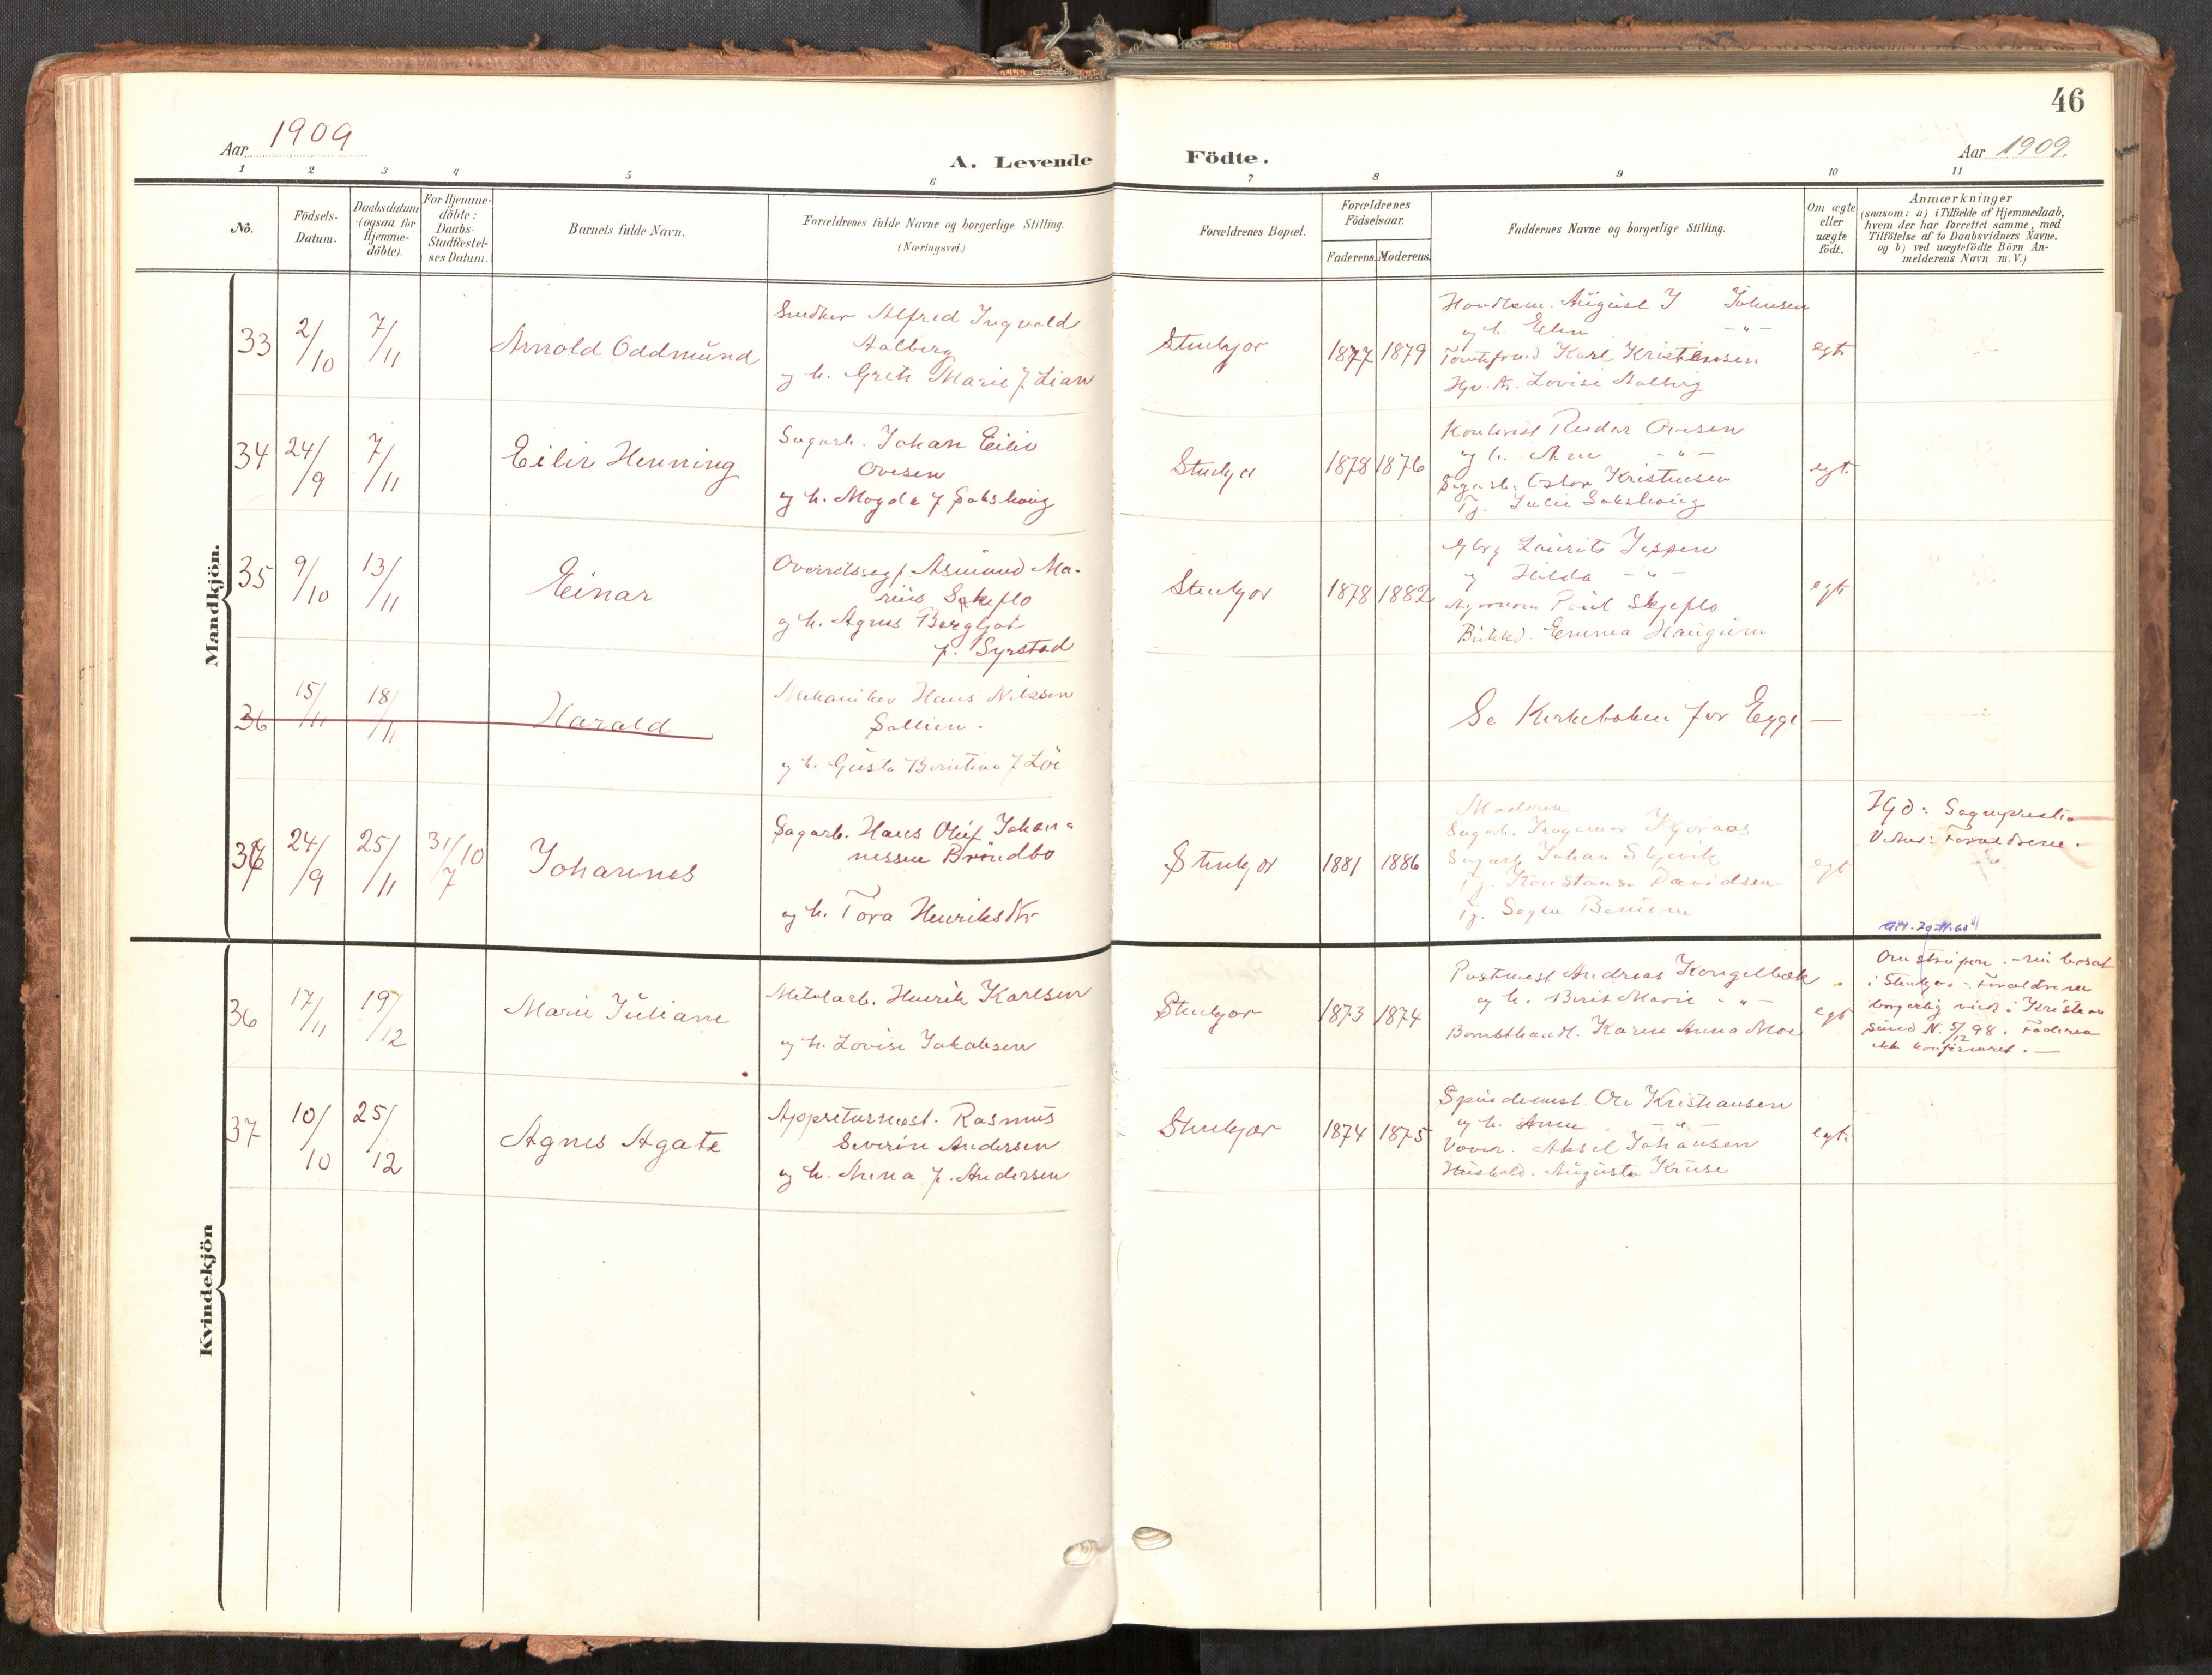 46
Aar 1909
A. Levende Födte.
Aar 1909.
1 2 3 4 5 6 7 8 9 10 11
No.
Födsels-
Datum.
Daabsdatum
(ogsaa for
Hjemme-
döbte).
For Hjemme-
döbte:
Daabs-
Stadfæstel-
ses Datum.
Barnets fulde Navn.
Forældrenes fulde Navne og borgerlige Stilling.
(Næringsvei.)
Forældrenes Bopæl.
Forældrenes
Födselsaar.
Faderens. Moderens.
Faddernes Navne og borgerlige Stilling.
Om ægte
eller
uægte
födt.
Anmærkninger
(saasom: a) i Tilfælde af Hjemmedaab,
hvem der har forrettet samme, med
Tilföielse af to Daabsvidners Navne,
og b) ved uægtefödte Börn An-
melderens Navn m. V.)
Mandkjön.
33
2/10
7/11
Arnold Oddmund
Snedker Alfred Ingvald
Aalberg
og h. Marie f. Lian
Stenkjær
1877 1879
August J Johnsen
og h. Elen -"-
Karl Kristensen
Lovise Aalberg
egt.
34
24/9
7/11
Eiliv Henning
Sagarb. Johan Eiliv
Ovesen
og h. Magda f Sakshaug
Stenkjær
1878 1876
Kontorist Peder Ovesen
og h. Ane -"-
Sagarb. Oskar Kristensen
Tj. Julie Sakshaug
egt.
35
9/10
13/11
Einar
Overretssagf. Asmund Ma-
rius Skjeflo
og h. Agnes Bergljot
f. Syrstad
Stenkjær
1878 1882
Laurits Jessen
og Hilda -"-
Agronom Paul Skjeflo
Emma Haugum
egt.
36
15/11
18/11
Harald
Mekaniker Hans Nilssen
Sollien.
og h. Gusta Berntine f Löe
Se Kirkeboken for Egge —
36
24/9
25/11
31/10
7
Johannes
Sagarb. Hans Oluf Johan-
nessen Bröndbo
og h. Tora Henriksdtr
Stenkjær
1881 1886
Moderen
Sagarb. Ingemar
Sagarb. Johan Skjevik
Tj. Konstanse Davidsen
Tj.
egt
Hjd: Sognepresten
Vidner: Forældrene.
Kvindekjön
36
17/11
19/12
Marie Juliane
Metalarb. Henrik Karlsen
og h. Lovise Jakobsen
Stenkjær
1873 1874
Postmest Andreas Kongelbæk
og h. Berit Marie -"-
Karen Anna Moe
egt
nu bosat
i Stenkjær - Forældrene
borgerlig viet i Kristian
sund N. 5/12 98. Faderen
ikke konfirmeret. —
37
10/10
25/12
Agnes Agate
Appreturmest. Rasmus
Severin Andersen
og h. Anna f. Andersen
Stenkjær
1874 1875
Spindemest. Ole Kristiansen
og h. Anne -"-
Væver. Aksel Johansen
Hushold. Augusta Kruse
egt.